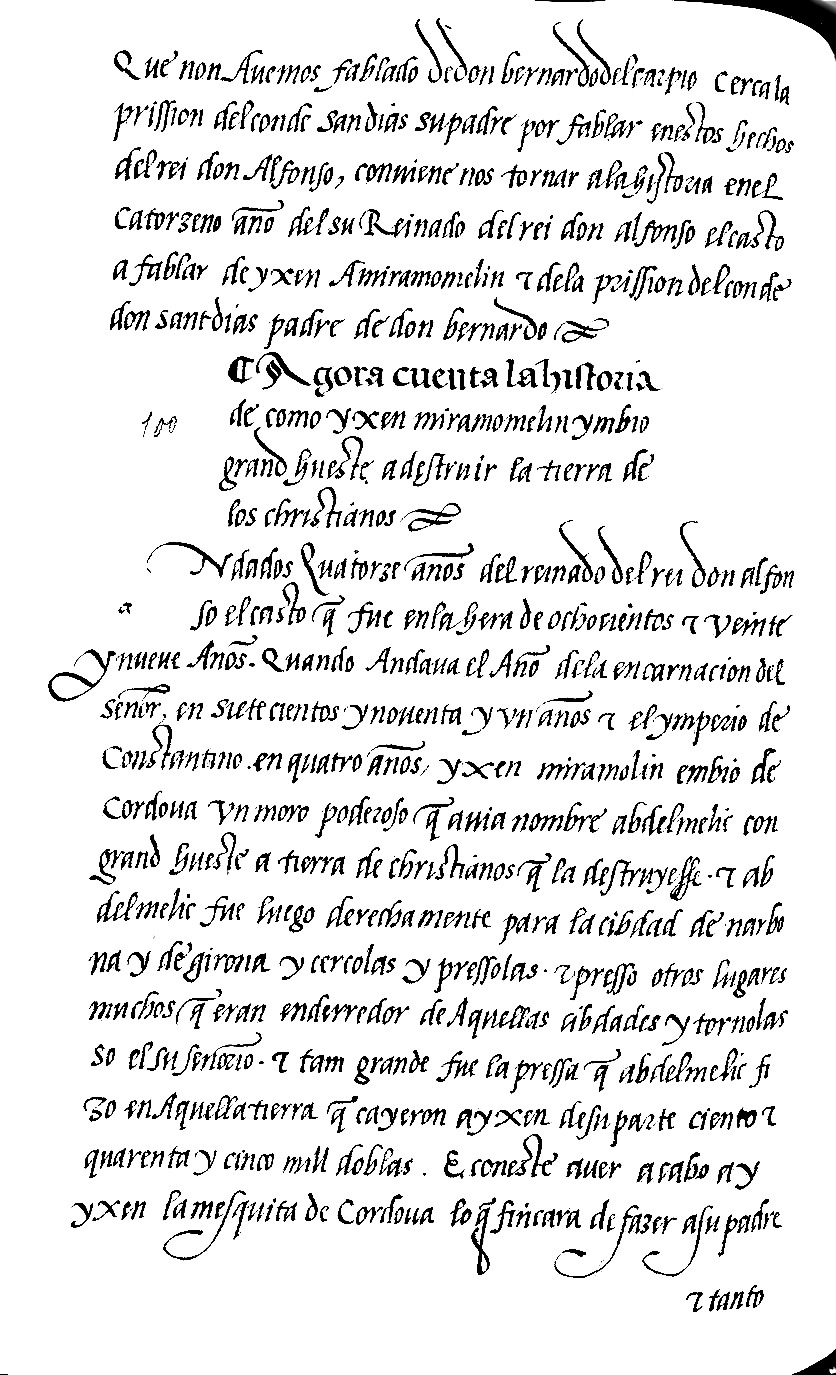 Que non Auemos fablado de don bernardo del carpio cerca la
prission del conde san dias su padre por fablar en estos hechos
del rei don Alfonso, conviene nos tornar a la historia en el
Catorzeno año del su Reinado del rei don alfonso el casto
a fablar de yxen Amiramomelin ⁊ de la prission del conde
don sant dias padre de don bernardo
¶ Agora cuenta la historia
100
de como yxen miramomelin ymbio
grand hueste a destruir la tierra de
los christianos
Ndados Quatorze años del reinado del rei don alfon
a
so el casto q̃ fue en la hera de ochocientos ⁊ veinte
y nueve Años. Quando Andaua el Año de la encarnacion del
señor, en siete cientos y noventa y vn años ⁊ el ymperio de
Constantino en quatro años, yxen miramolin embio de
Cordoua vn moro poderoso q̃ auia nombre abdelmelic con
grand hueste a tierra de christianos q̃ la destruyesse. ⁊ ab
delmelic fue luego derechamente para la cibdad de narbo
na y de girona y cercolas y pressolas. ⁊ presso otros lugares
muchos q̃ eran enderredor de Aquellas cibdades y tornolas
so el su señorio. ⁊ tam grande fue la pressa q̃ abdelmelic fi
zo en Aquella tierra q̃ cayeron a yxen de su parte ciento ⁊
quarenta y cinco mill doblas. E con este auer acabo ay
yxen la mesquita de Cordoua lo q̃ fincara de fazer a su padre
⁊ tanto